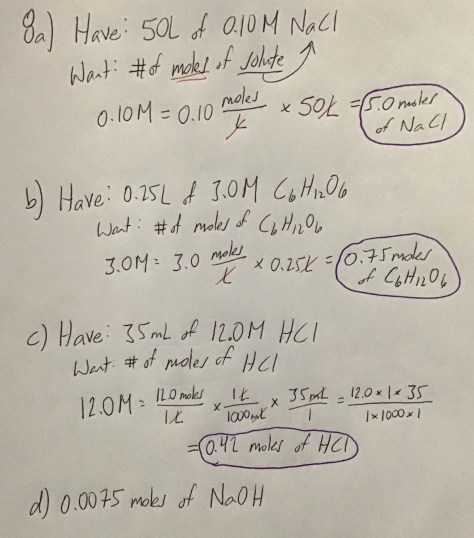 8a) Have: 50L of 0.10M NaCl
Want: # of moles of solute
0.10M = 0.10 moles/L × 50L = 5.0 moles of NaCl
b) Have: 0.25L of 3.0M C6H12O6
Want: # of moles of C6H12O6
3.0M = 3.0 moles/L × 0.25L = 0.75 moles of C6H12O6
c) Have: 35mL of 12.0M HCl
Want: # of moles of HCl
12.0M = 12.0 moles/1L × 1L/1000mL × 35mL/1 = 12.0 × 1 × 35/1 × 1000 × 1
= 0.42 moles of HCl
d) 0.0075 moles of NaOH